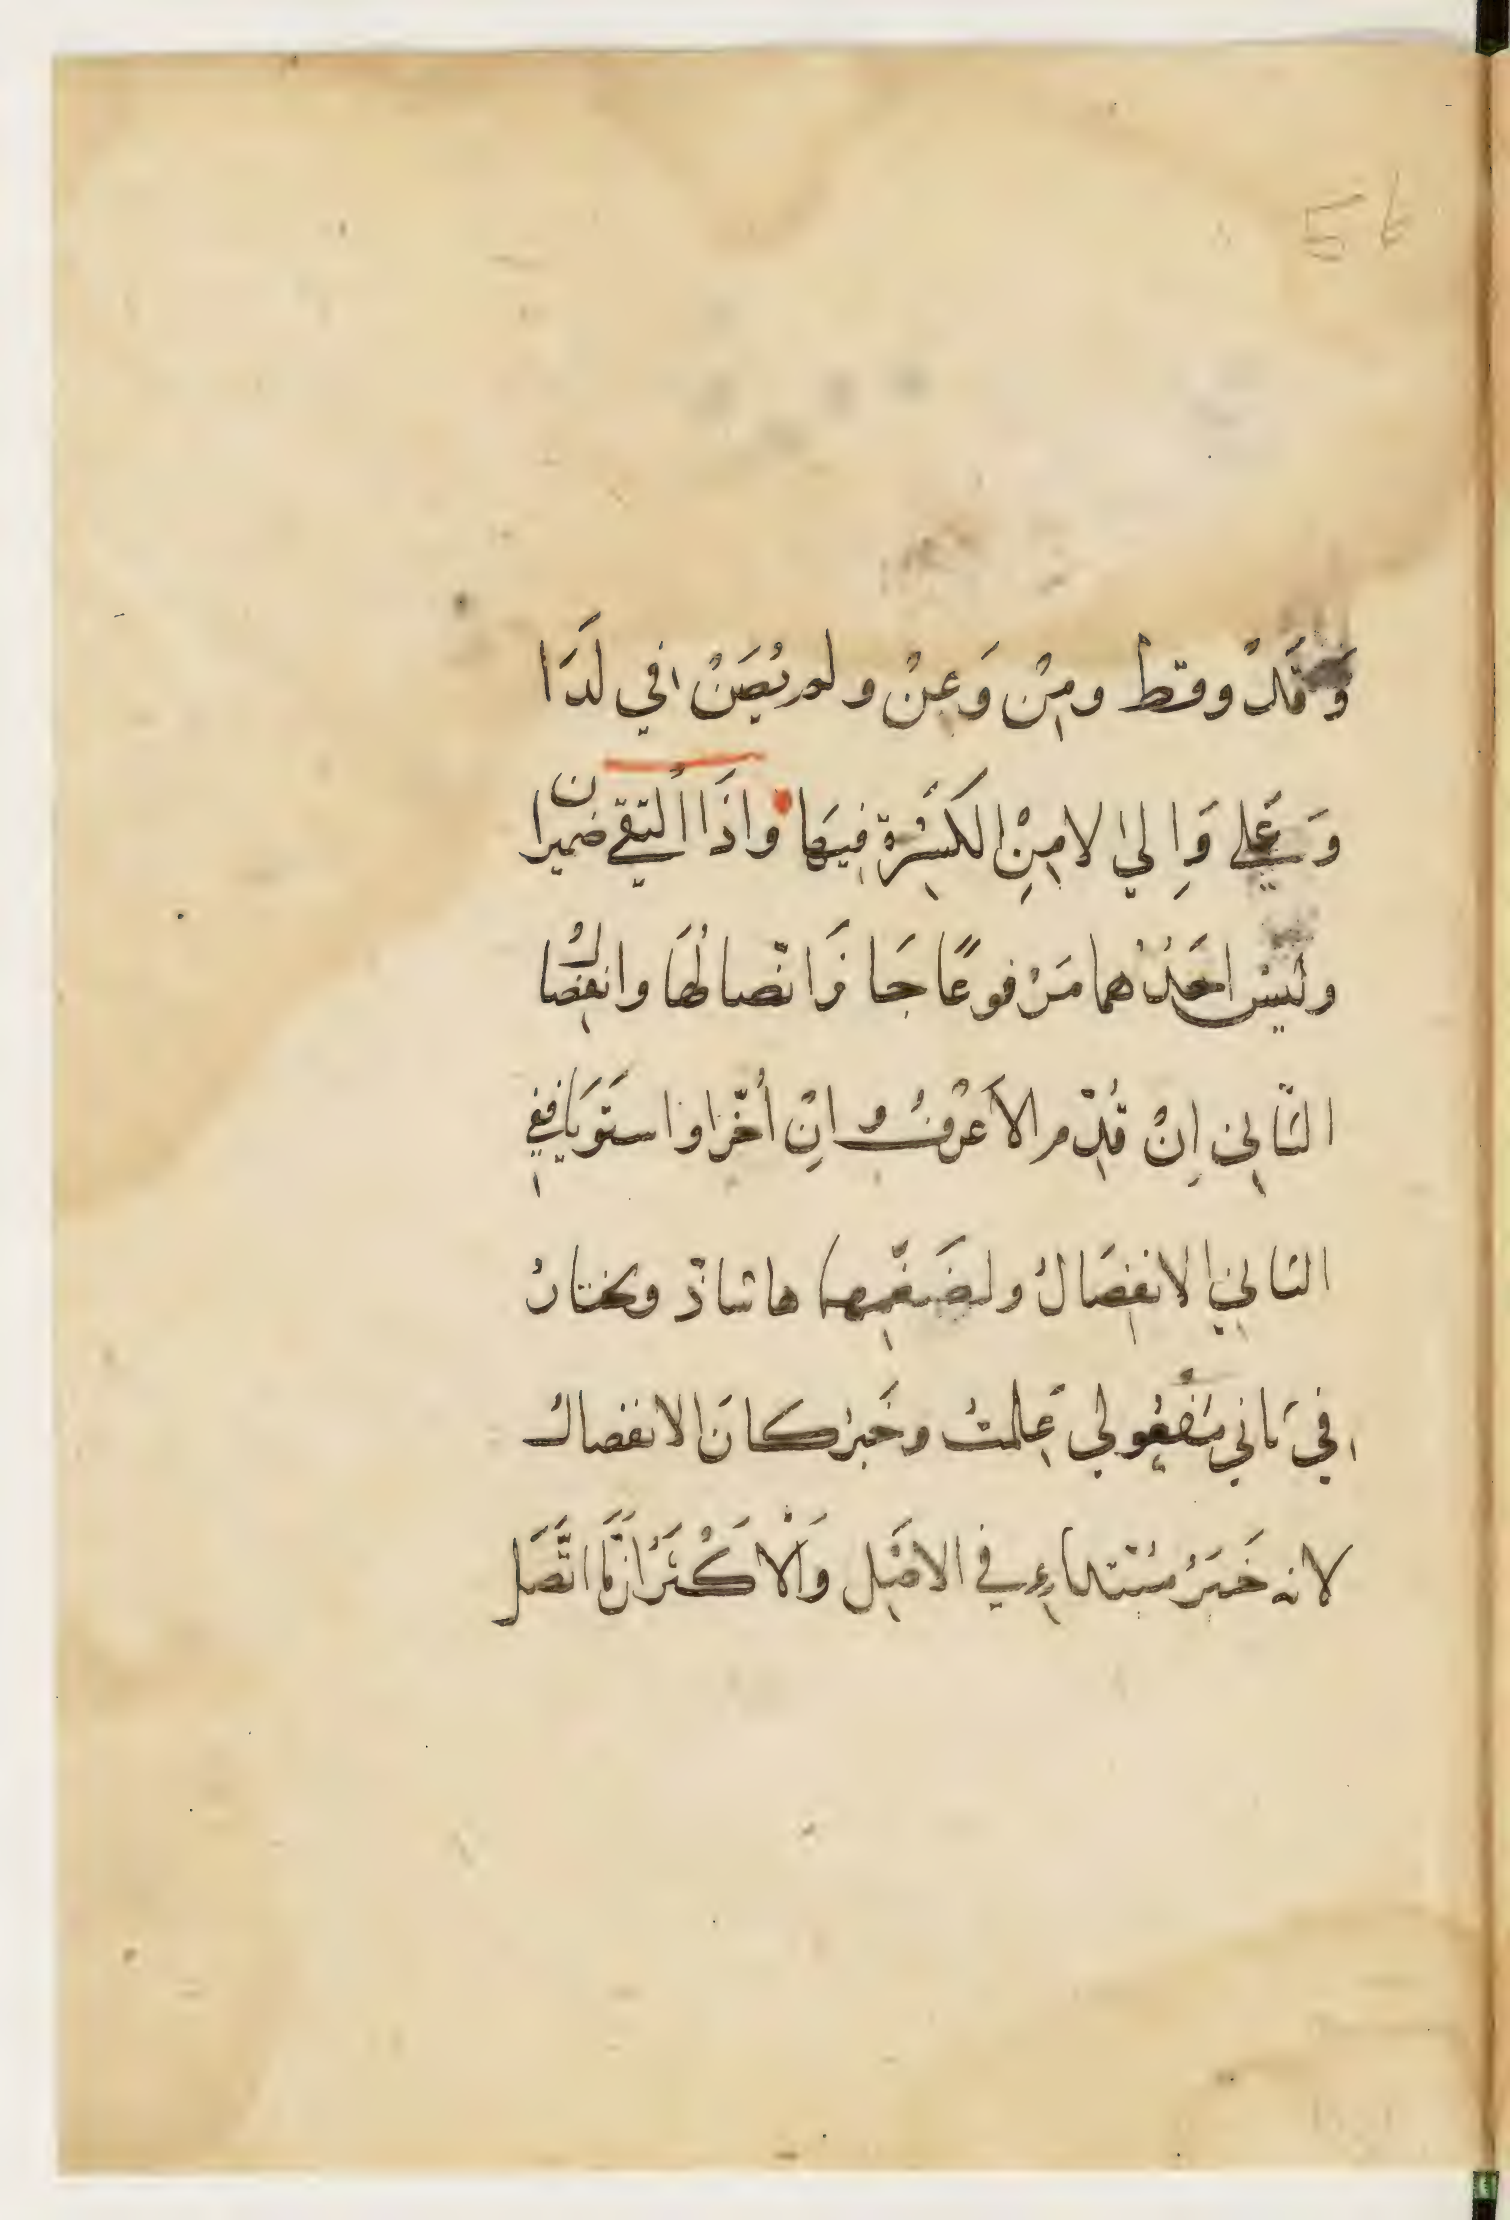 56
وَقَدْ وقط ومِنْ وَعَنْ ولم يُصَنْ في لَدَا
وَعَلى وَاِلي لا مِنِ الكَسْرَة فِيهَا واذَا التقي ضميران
ولَيْسَ احَدُهُما مَرْفوعًا جَازَ اتّصالُهَا وانفِصَالُ
الثَّاني اِنْ قُدِّم الاَعْرَفُ واِنْ أُخِّرَ او استَوَيَا ففي
الثاني الانفِصَالُ ولضَغْمِهماها شاذّ ويختارُ
في ثاني مَفْعُولي عَلِمتُ وخَبَرُ كانَ الانفصالُ
لانه خَبَرُ مُبْتداءٍ في الاصْلِ وَالْاَكْثَرُ انَّمَا اتَّصَل